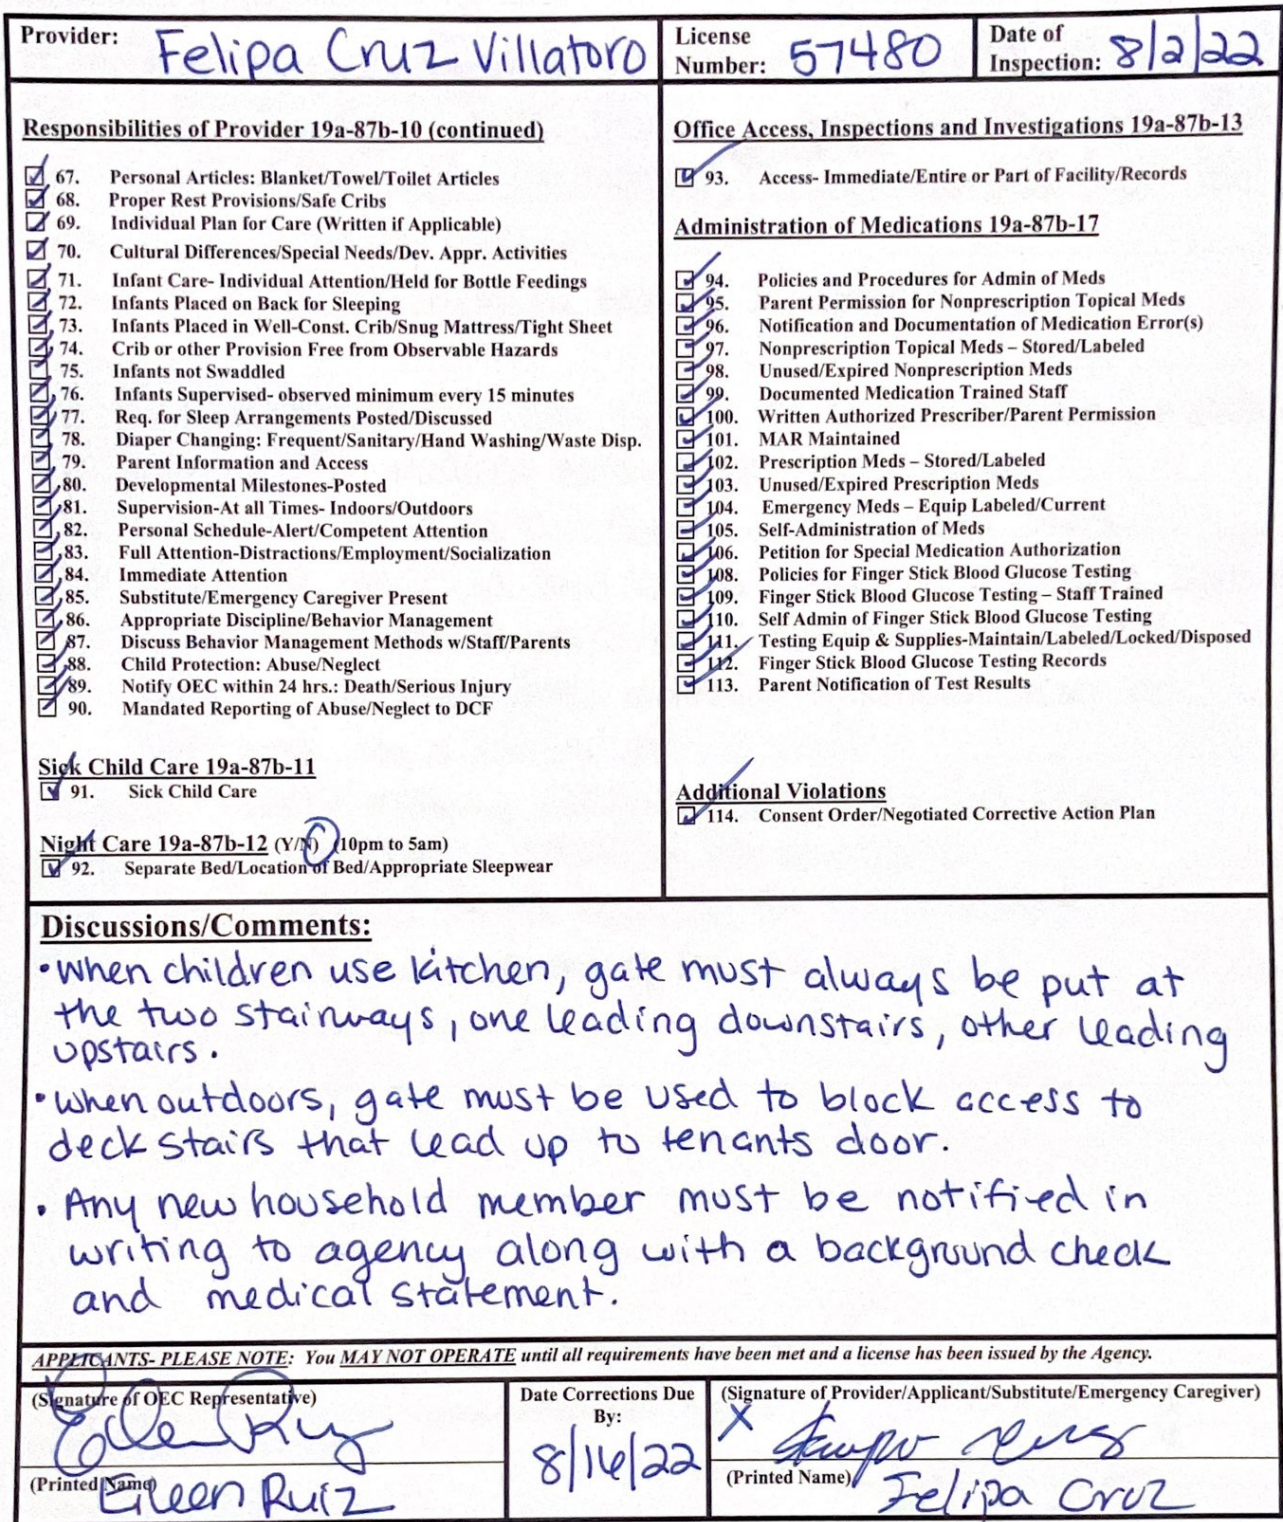 Provider: Felipa Cruz Villatoro
License Number: 57480
Date of Inspection: 8/2/22
Responsibilities of Provider 19a-87b-10 (continued)
67. Personal Articles: Blanket/Towel/Toilet Articles
68. Proper Rest Provisions/Safe Cribs
69. Individual Plan for Care (Written if Applicable)
70. Cultural Differences/Special Needs/Dev. Appr. Activities
71. Infant Care- Individual Attention/Held for Bottle Feedings
72. Infants Placed on Back for Sleeping
73. Infants Placed in Well-Const. Crib/Snug Mattress/Tight Sheet
74. Crib or other Provision Free from Observable Hazards
75. Infants not Swaddled
76. Infants Supervised- observed minimum every 15 minutes
77. Req. for Sleep Arrangements Posted/Discussed
78. Diaper Changing: Frequent/Sanitary/Hand Washing/Waste Disp.
79. Parent Information and Access
80. Developmental Milestones-Posted
81. Supervision-At all Times- Indoors/Outdoors
82. Personal Schedule-Alert/Competent Attention
83. Full Attention-Distractions/Employment/Socialization
84. Immediate Attention
85. Substitute/Emergency Caregiver Present
86. Appropriate Discipline/Behavior Management
87. Discuss Behavior Management Methods w/Staff/Parents
88. Child Protection: Abuse/Neglect
89. Notify OEC within 24 hrs.: Death/Serious Injury
90. Mandated Reporting of Abuse/Neglect to DCF
Sick Child Care 19a-87b-11
91. Sick Child Care
Night Care 19a-87b-12 (Y/N) (10pm to 5am)
92. Separate Bed/Location of Bed/Appropriate Sleepwear
Office Access, Inspections and Investigations 19a-87b-13
93. Access- Immediate/Entire or Part of Facility/Records
Administration of Medications 19a-87b-17
94. Policies and Procedures for Admin of Meds
95. Parent Permission for Nonprescription Topical Meds
96. Notification and Documentation of Medication Error(s)
97. Nonprescription Topical Meds – Stored/Labeled
98. Unused/Expired Nonprescription Meds
99. Documented Medication Trained Staff
100. Written Authorized Prescriber/Parent Permission
101. MAR Maintained
102. Prescription Meds – Stored/Labeled
103. Unused/Expired Prescription Meds
104. Emergency Meds – Equip Labeled/Current
105. Self-Administration of Meds
106. Petition for Special Medication Authorization
108. Policies for Finger Stick Blood Glucose Testing
109. Finger Stick Blood Glucose Testing – Staff Trained
110. Self Admin of Finger Stick Blood Glucose Testing
111. Testing Equip & Supplies-Maintain/Labeled/Locked/Disposed
112. Finger Stick Blood Glucose Testing Records
113. Parent Notification of Test Results
Additional Violations
114. Consent Order/Negotiated Corrective Action Plan
Discussions/Comments:
• When children use kitchen, gate must always be put at
the two stairways, one leading downstairs, other leading
upstairs.
• when outdoors, gate must be used to block access to
deck stairs that lead up to tenants door.
• Any new household member must be notified in
writing to agency along with a background check
and medical statement.
APPLICANTS- PLEASE NOTE: You MAY NOT OPERATE until all requirements have been met and a license has been issued by the Agency.
(Signature of OEC Representative)
Eileen Ruiz
(Printed Name) Eileen Ruiz
Date Corrections Due
By:
8/16/22
(Signature of Provider/Applicant/Substitute/Emergency Caregiver)
X
(Printed Name) Felipa Cruz